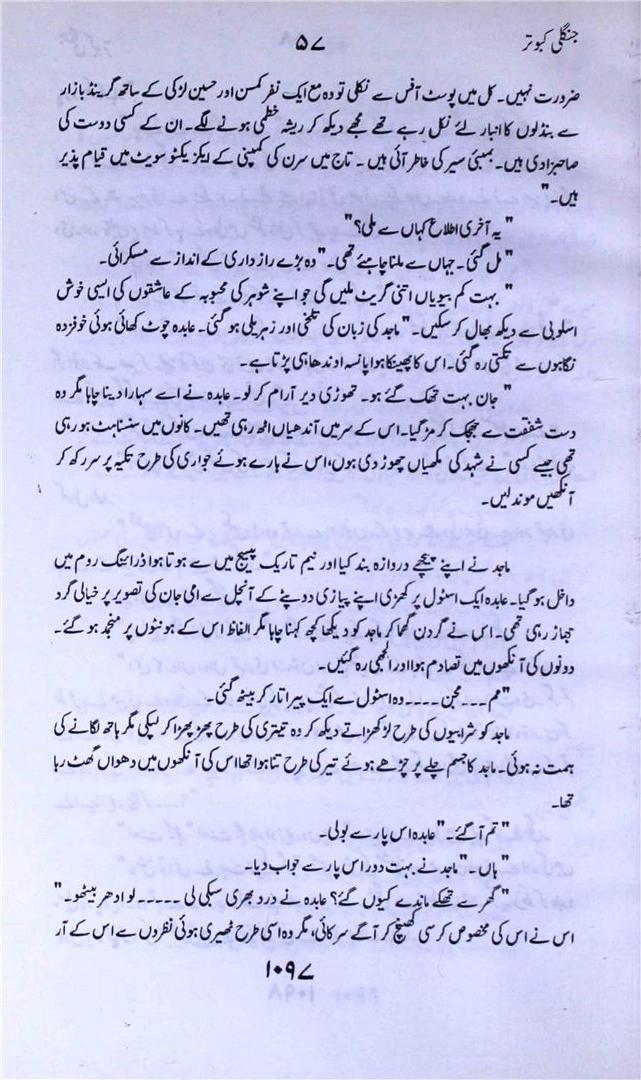 جنگلی کبوتر
۵۷
ضرورت نہیں۔ کل میں پوسٹ آفس سے نکلی تو وہ مع ایک نفر کمسن اور حسین لڑکی کے ساتھ گرینڈ بازار
سے بنڈلوں کا انبار لئے نکل رہے تھے مجھے دیکھ کر ریشہ خطمی ہونے لگے۔ ان کے کسی دوست کی
صاحبزادی ہیں۔ بمبئی سیر کی خاطر آئی ہیں۔ تاج میں سرن کی کمپنی کے ایگزیکٹو سویٹ میں قیام پذیر
ہیں۔"
"یہ آخری اطلاع کہاں سے ملی؟"
"مل گئی۔ جہاں سے ملنا چاہئے تھی۔" وہ بڑے رازداری کے انداز سے مسکرائی۔
"بہت کم بیویاں اتنی گریٹ ملیں گی جو اپنے شوہر کی محبوبہ کے عاشقوں کی ایسی خوش
اسلوبی سے دیکھ بھال کر سکیں۔" ماجد کی زبان کی تلخی اور زہریلی ہو گئی۔ عابدہ چوٹ کھائی ہوئی خوفزدہ
نگاہوں سے تکتی رہ گئی۔ اس کا پھینکا ہوا پانسہ اوندھا ہی پڑتا ہے۔
"جان بہت تھک گئے ہو۔ تھوڑی دیر آرام کر لو۔ عابدہ نے اسے سہارا دینا چاہا مگر وہ
دست شفقت سے جھجک کر مڑ گیا۔ اس کے سر میں آندھیاں اٹھ رہی تھیں۔ کانوں میں سنسناہٹ ہو رہی
تھی جیسے کسی نے شہد کی مکھیاں چھوڑ دی ہوں، اس نے ہارے ہوئے جواری کی طرح تکیہ پر سر رکھ کر
آنکھیں موند لیں۔
ماجد نے اپنے پیچھے دروازہ بند کیا اور نیم تاریک پیسیج میں سے ہوتا ہوا ڈرائنگ روم میں
داخل ہو گیا۔ عابدہ ایک اسٹول پر کھڑی اپنے پیازی دوپٹے کے آنچل سے امی جان کی تصویر پر خیالی گرد
جھاڑ رہی تھی۔ اس نے گردن گھما کر ماجد کو دیکھا کچھ کہنا چاہا مگر الفاظ اس کے ہونٹوں پر منجمد ہو گئے۔
دونوں کی آنکھوں میں تصادم ہوا اور الجھی رہ گئیں۔
"مم ۔۔۔ مجن ۔۔۔۔ وہ اسٹول سے ایک پیر اتار کر بیٹھ گئی۔
ماجد کو شرابیوں کی طرح لڑکھڑاتے دیکھ کر وہ تیتری کی طرح پھڑپھڑا کر لپکی مگر ہاتھ لگانے کی
ہمت نہ ہوئی۔ ماجد کا جسم چلے پر چڑھے ہوئے تیر کی طرح تنا ہوا تھا اس کی آنکھوں میں دھواں گھٹ رہا
تھا۔
"تم آ گئے۔" عابدہ اس پار سے بولی۔
"ہاں۔" ماجد نے بہت دور اس پار سے جواب دیا۔
"گھر سے تھکے ماندے کیوں گئے؟ عابدہ نے درد بھری سبکی لی ۔۔۔۔۔ لو ادھر بیٹھو۔"
اس نے اس کی مخصوص کرسی کھینچ کر آگے سرکائی، مگر وہ اسی طرح ٹھیری ہوئی نظروں سے اس کے آر
۱۰۹۷